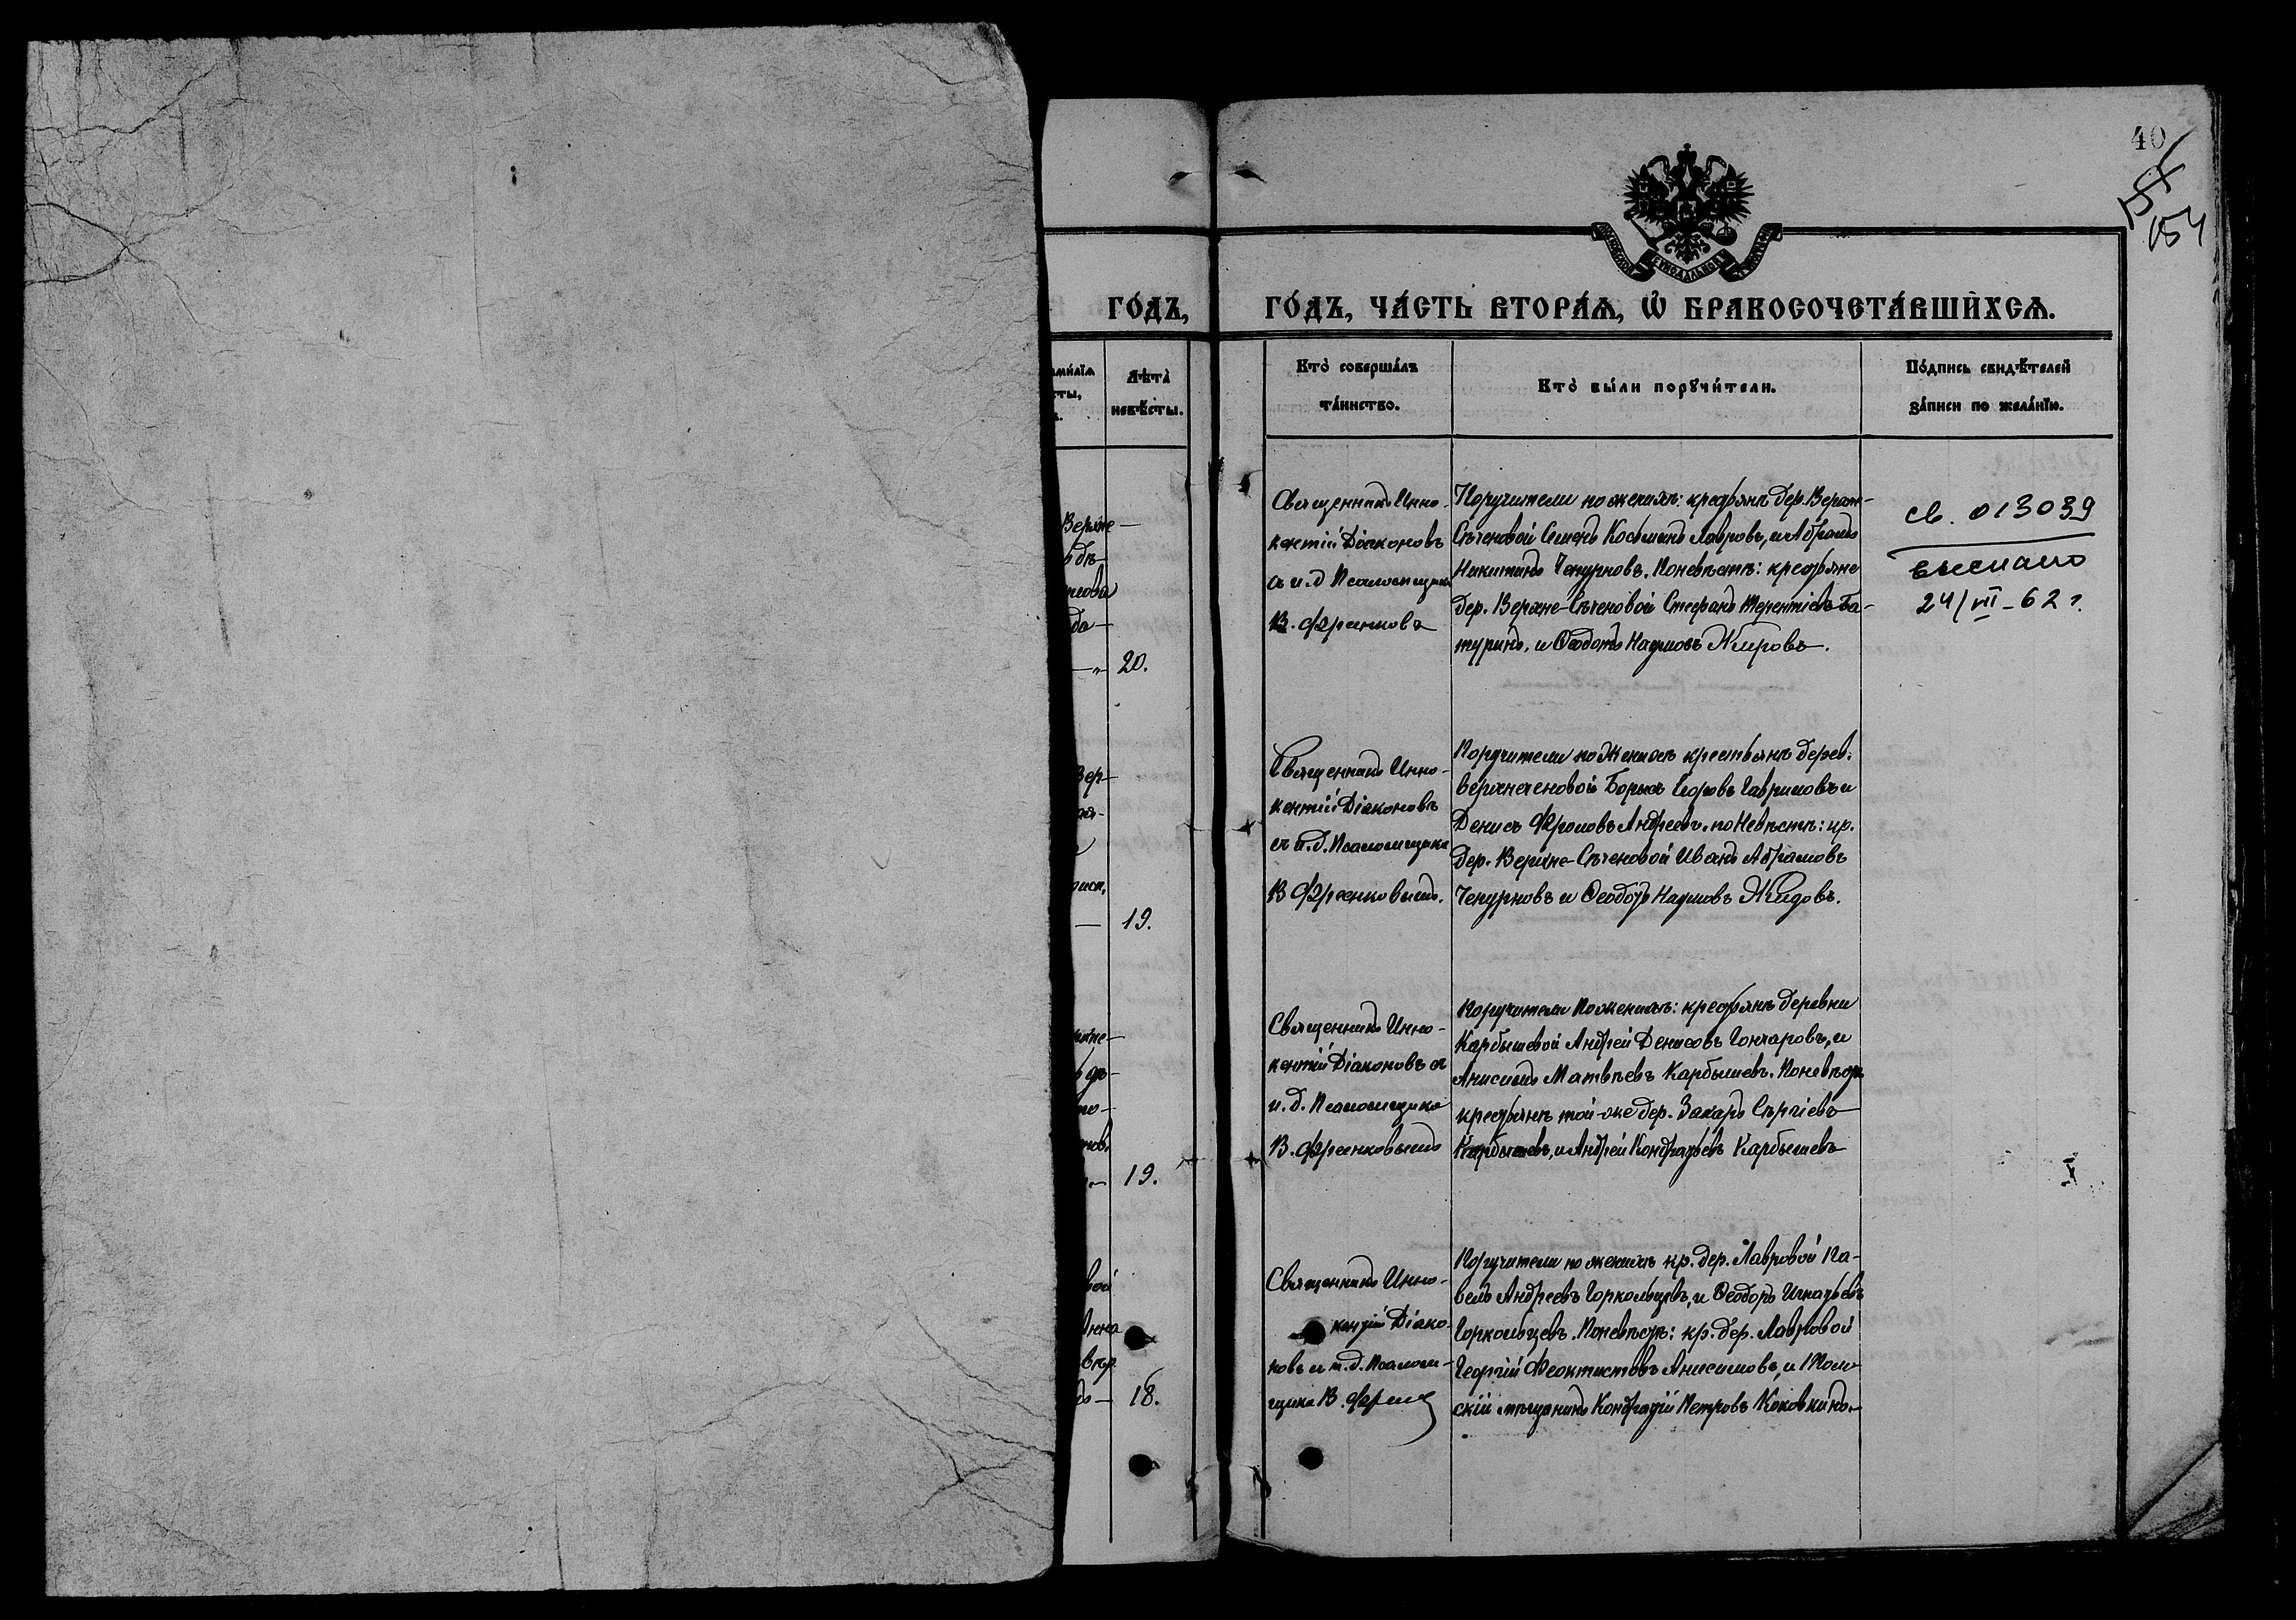 40
154
ГО́ДЪ,
ГО́ДЪ, ЧА́СТЬ ВТОРА́Ѧ, Ѡ҆ БРАКОСОЧЕТА́ВШИХСѦ.
Лѣта̀
невѣ́сты.
Кто̀ соверша́лъ
та́инство.
Кто̀ бы́ли порꙋчи́тели.
По́дпись свидѣ́телей
за́писи по жела́нїю.
Верхне-
20.
19.
19.
Анна
18.
Священникъ Инно-
кентій Діаконовъ
с и.д Псаломщика
В. Френковъ
Поручители по женихѣ: крестьянѣ дер. Верхне-
Сѣченовой Семенъ Косьминъ Лавровъ, и Абрамъ
Никитинъ Чепурновъ. По невѣстѣ: крестьяне
дер. Верхне-Сѣченовой Стефанъ Терентіевъ Ба-
туринъ, и Ѳеодотъ Наумовъ
св. 013039
выслано
24/VII-62 г.
Священникъ Инно-
кентій Діаконовъ
съ и.д. Псаломщика
В Френковымъ.
Поручители по Женихѣ крестьянѣ дерев.
Борисъ Егоровъ Гавриловъ и
Денисъ Фроловъ Андреевъ. по Невѣстѣ: кр.
дер. Верхне-Сѣченовой Иванъ Абрамовъ
Чепурновъ и Ѳеодотъ Наумовъ
Священникъ Инно-
кентій Діаконовъ съ
и.д. Псаломщика
В. Френковымъ
Поручители По женихѣ: крестьянѣ деревни
Карбышевой Андрей Денисовъ Гончаровъ, и
Анисимъ Матвѣевъ Карбышевъ. По невѣстѣ
крестьянѣ той-же дер. Захаръ Сергіевъ
Карбышевъ, и Андрей Кондратьевъ Карбышевъ
Священникъ Инно-
кентій Діако-
новъ и и.д. Псалом-
щика В. Френк
Поручители по женихѣ кр. дер. Лавровой Па-
велъ Андреевъ Горкольцевъ, и Ѳеодоръ Игнатьевъ
Горкольцевъ. По невѣстѣ: кр. дер. Лавровой
Георгій Феоктистовъ Анисимовъ, и
скій мѣщанинъ Кондратій Петровъ Коковкинъ.